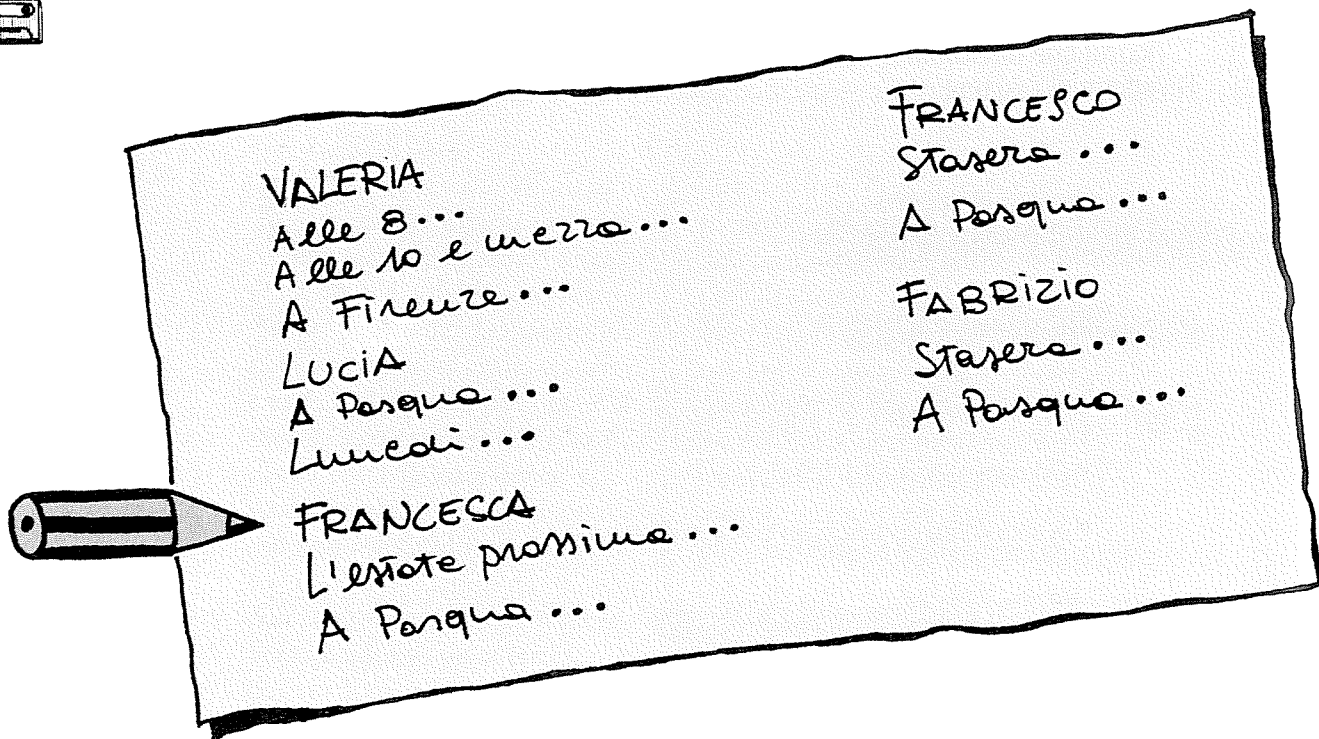 VALERIA
Alle 8...
Alle 10 e mezza...
A Firenze...
LUCIA
A Pasqua...
Lunedì...
FRANCESCA
L'estate prossima...
A Pasqua...
FRANCESCO
Stasera...
A Pasqua...
FABRIZIO
Stasera...
A Pasqua...